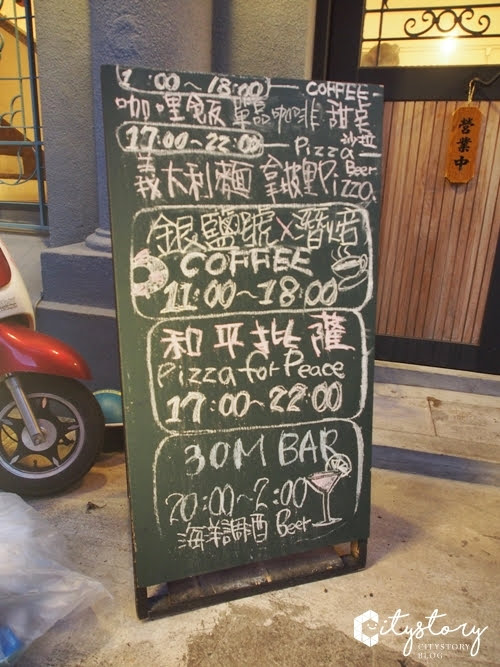 1 :00~18:00 — COFFEE-
咖哩飯 單品咖啡 甜品
17:00~22:00 — Pizza 沙拉
義大利麵 拿坡里Pizza Beer
銀鹽號×潛焙
COFFEE
11:00~18:00
和平批薩
Pizza for Peace
17:00~22:00
30M BAR
20:00~2:00
海洋調酒 Beer
營業中
Citystory
CITYSTORY
BLOG